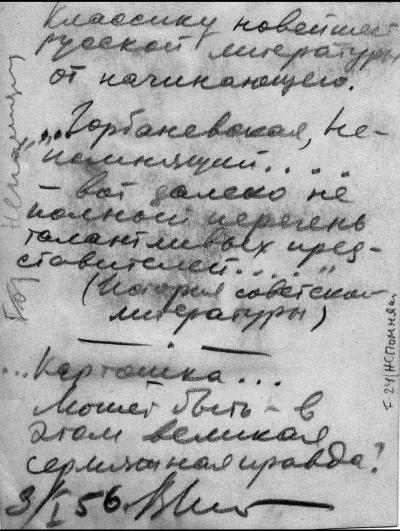 Классику новейшей
русской литературы
от начинающего.
"...Горбаневская, Не-
помнящий. . . .
– вот далеко не
полной перечень
талантливых пред-
ставителей. . . . "
(История советской
литературы)
...Картошка...
Может быть – в
этом великая
сермяжная правда?
3/I 56.